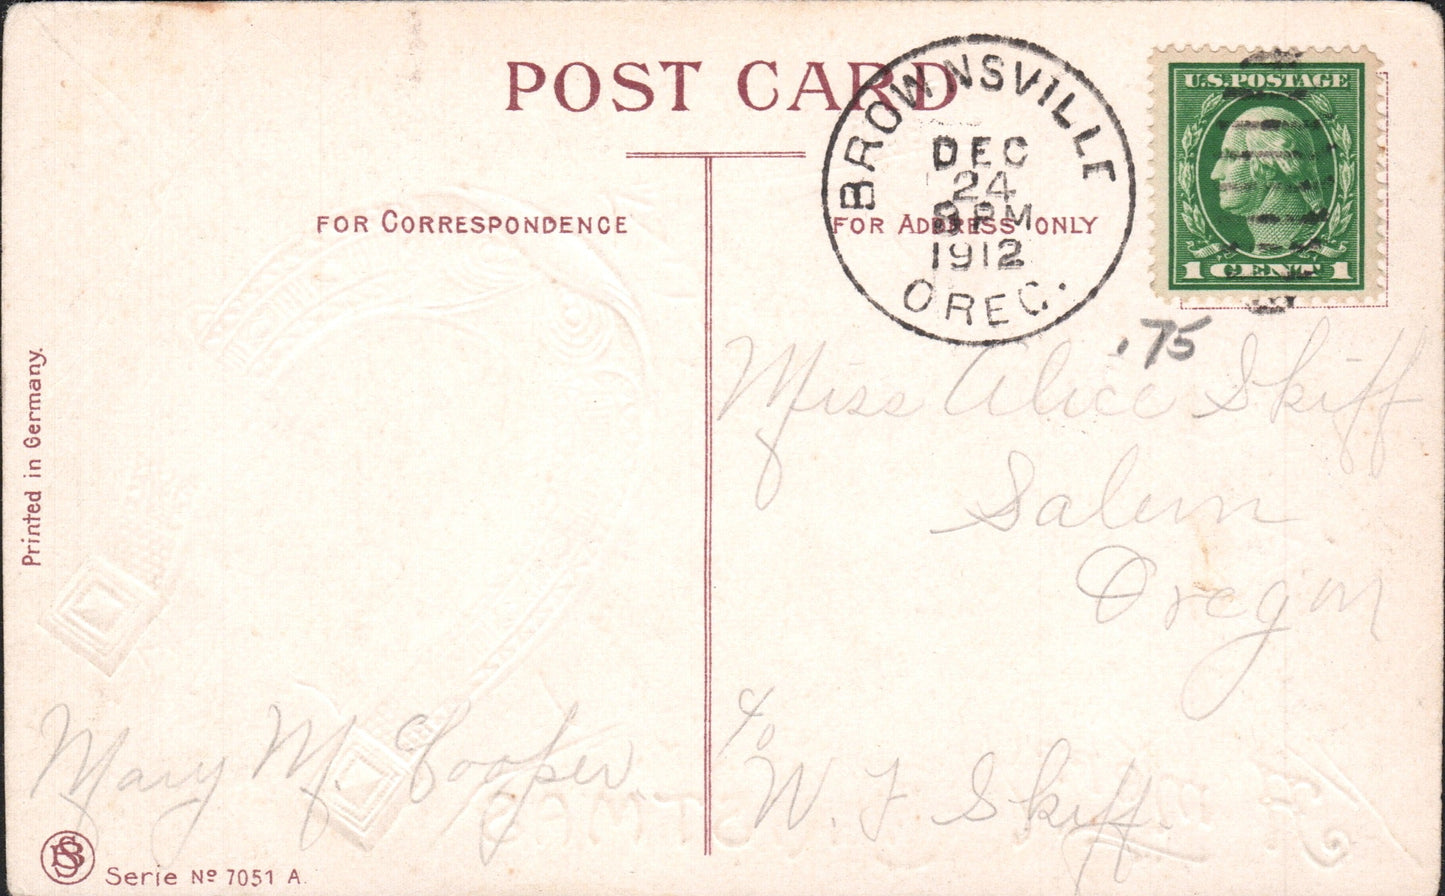 POST CARD
BROWNSVILLE
DEC
24
8 PM
1912
OREG.
U.S. POSTAGE
1 CENT 1
FOR CORRESPONDENCE
FOR ADDRESS ONLY
.75
Miss Alice Skiff
Salem
Oregon
c/o
W. F. Skiff
Mary M. Cooper
Printed in Germany.
Serie No 7051 A.